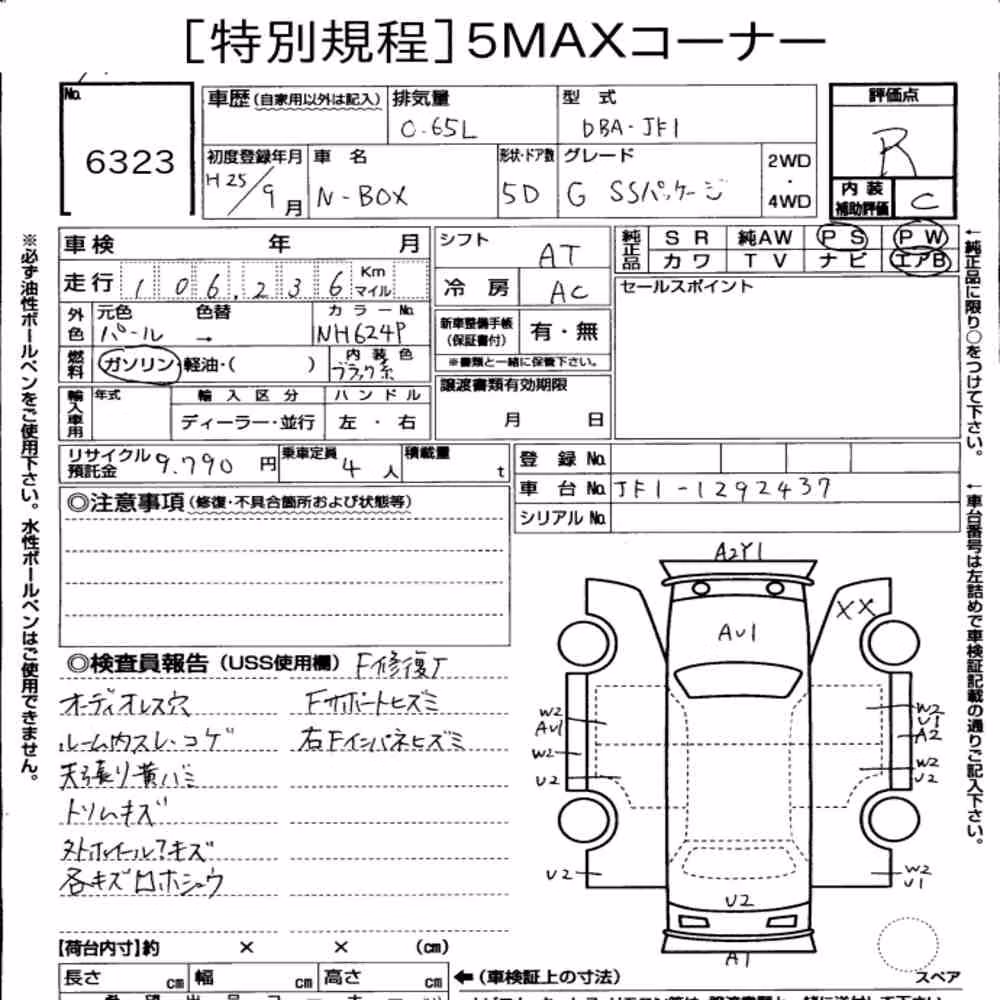 [特別規程]5MAXコーナー
No. 6323
車歴(自家用以外は記入) 排気量 0.65L 型式 DBA-JF1
評価点 R
初度登録年月 H25/9月 車名 N-BOX 形状・ドア数 5D グレード G SSパッケージ 2WD・4WD
内装補助評価 C
車検 年 月
シフト AT
純正品 SR 純AW PS PW
カワ TV ナビ エアB
走行 106,236 Km マイル
冷房 AC
セールスポイント
外色 元色 パール 色替 → カラーNo. NH624P
新車整備手帳(保証書付) 有・無
※書類と一緒に保管下さい。
燃料 ガソリン・軽油・( ) 内装色 ブラック系
譲渡書類有効期限
月 日
輸入車用 年式 輸入区分 ハンドル
ディーラー・並行 左・右
リサイクル預託金 9.790円 乗車定員 4人 積載量 t
登録No.
車台No. JF1-1292437
シリアルNo.
◎注意事項(修復・不具合箇所および状態等)
◎検査員報告(USS使用欄) F修復ｱ
オーディオレス穴 Fサポートヒズミ
ルーム内スレ・コゲ 右Fインパネヒズミ
天張り黄バミ
トリムキズ
外ホイール1キズ
各キズロホシュウ
A2Y1
XX
AU1
W2
AU1
W2
U2
W2
U1
A2
W2
U2
U2
W2
U1
U2
A1
スペア
【荷台内寸】約 × × (cm)
長さ cm 幅 cm 高さ cm ←(車検証上の寸法)
※必ず油性ボールペンをご使用下さい。水性ボールペンはご使用できません。
←純正品に限り○をつけて下さい。
←車台番号は左詰めで車検証記載の通りご記入下さい。